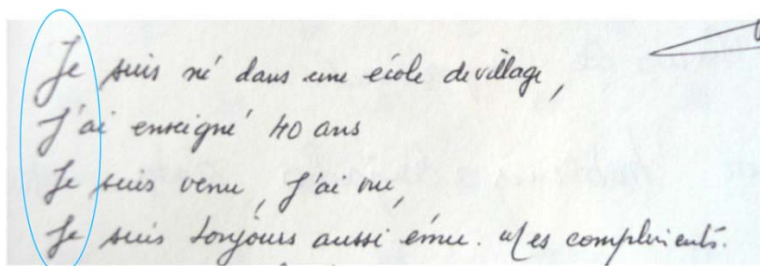 Je suis né dans une école de village,
J'ai enseigné 40 ans
Je suis venu, j'ai vu,
Je suis toujours aussi ému. Mes compliments.